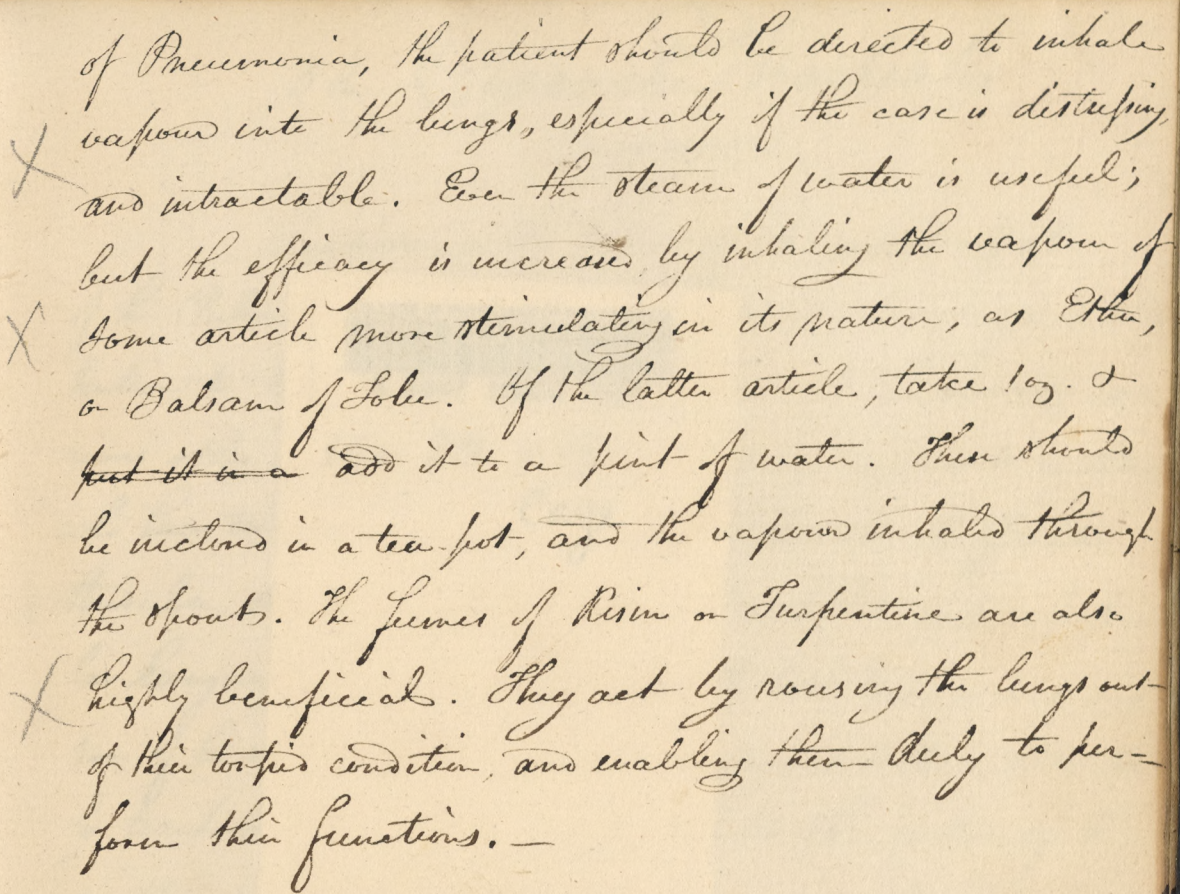 of Pneumonia, the patient should be directed to inhale
vapour into the lungs, especially if the case is distressing,
and intractable. Even the steam of water is useful;
but the efficacy is increased by inhaling the vapour of
some article more stimulating in its nature, as Ether,
or Balsam of Tolu. Of the latter article, take 1 oz. &
put it in a add it to a pint of water. These should
be inclosed in a tea-pot, and the vapour inhaled through
the spout. The fumes of Risin or Turpentine are also
highly beneficial. They act by rousing the lungs out
of their torpid condition, and enabling them duly to per-
form their functions. —